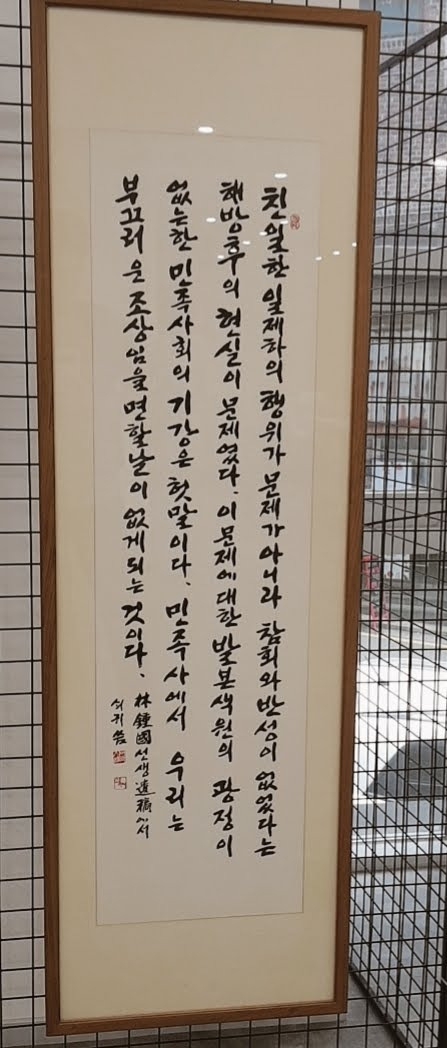 친일한 일제하의 행위가 문제가 아니라 참회와 반성이 없었다는
해방후의 현실이 문제였다. 이 문제에 대한 발본색원의 광정이
없는한 민족사회의 기강은 헛말이다. 민족사에서 우리는
부끄러운 조상임을 면할날이 없게 되는 것이다.
林鍾國선생遺稿에서
쉬귀 씀